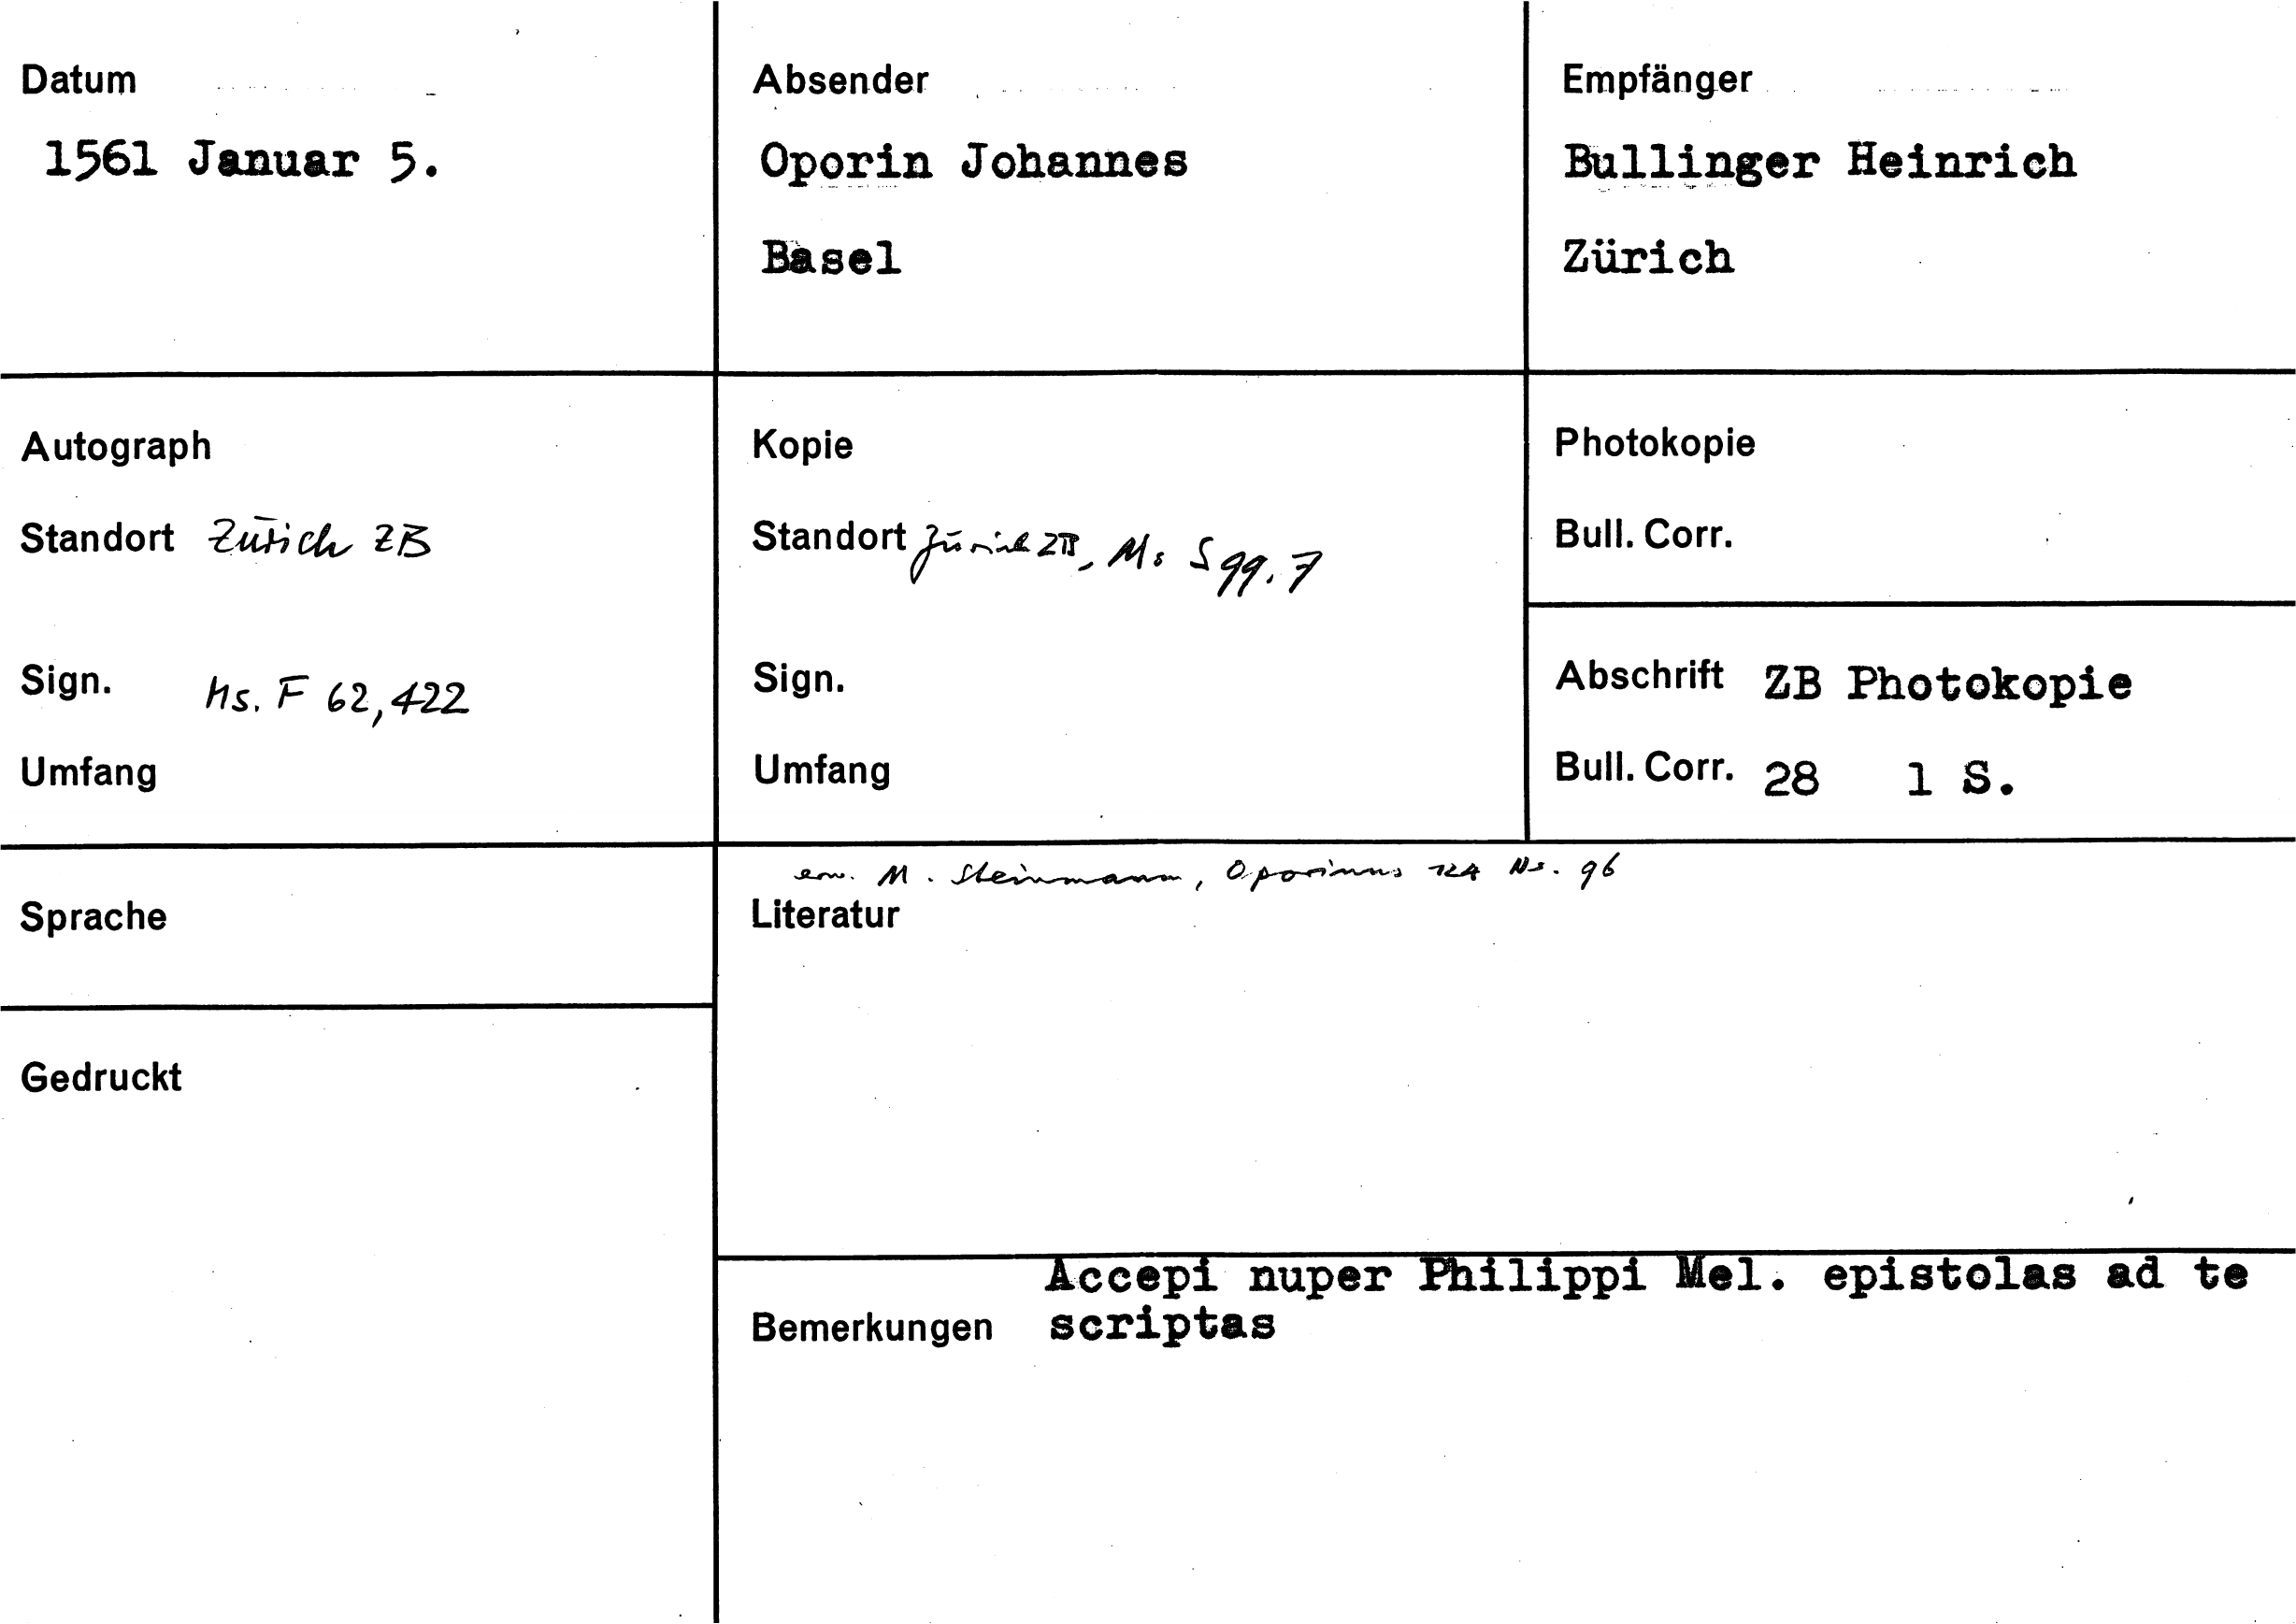 Datum
1561 Januar 5.
Absender
Oporin Johannes
Basel
Empfänger
Bullinger Heinrich
Zürich
Autograph
Standort Zürich ZB
Sign. Ms. F 62,422
Umfang
Kopie
Standort Zürich ZB, Ms S 99.7
Sign.
Umfang
Photokopie
Bull. Corr.
Abschrift ZB Photokopie
Bull. Corr. 28 1 S.
Sprache
Gedruckt
erw. M. Steinmann, Oporinus 124 Nr. 96
Literatur
Accepi nuper Philippi Mel. epistolas ad te
Bemerkungen scriptas